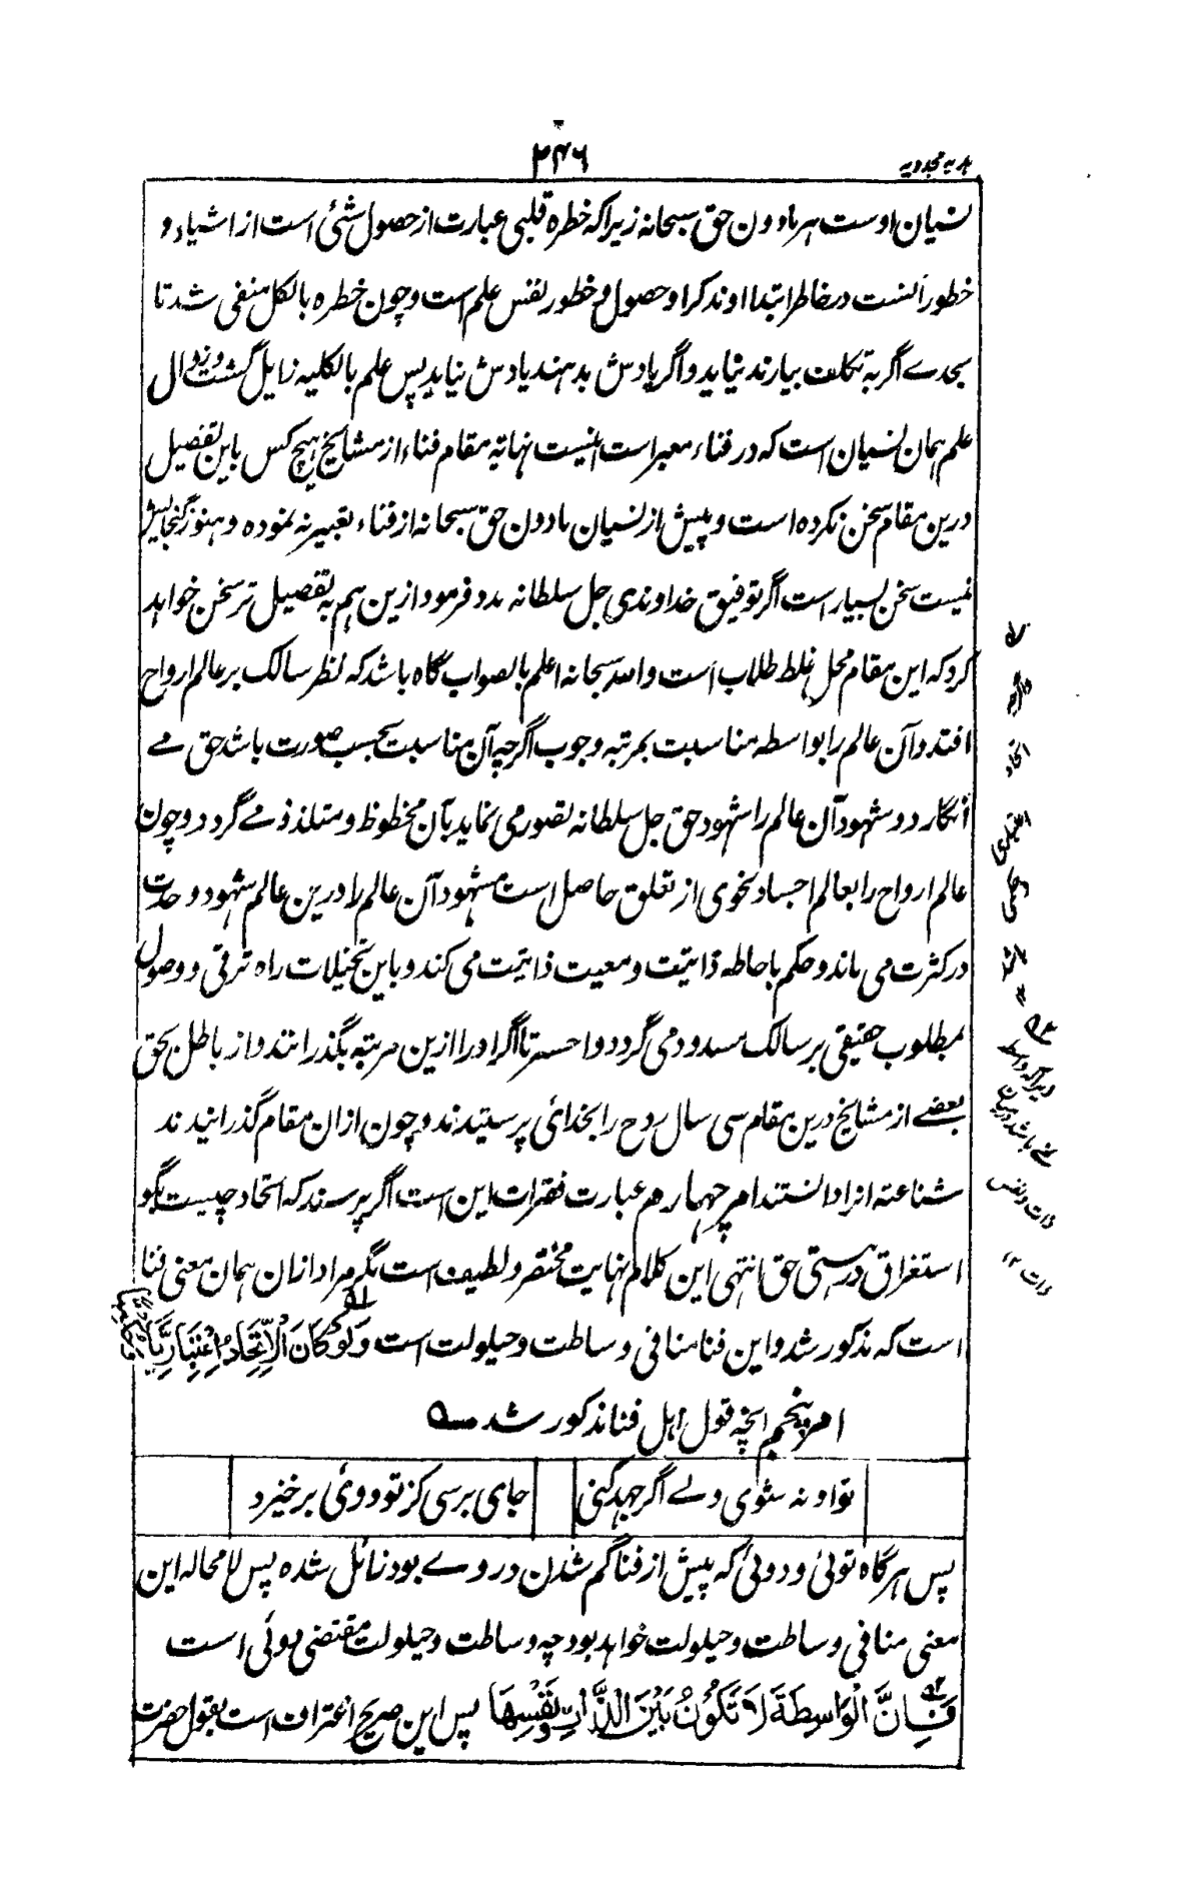 ۲۴۶
نسیان اوست هر مادون حق سبحانه زیرا که خطره قلبی عبارت از حصول شئ است از اشیاء و
خطور آنست در خاطر ابتداءً وتذکراً و حصول و خطور نفس علم است و چون خطره بالکل منفی شد تا
بحدے اگر به تکلف بیارند نیاید و اگر یادش بدهند یادش نیاید پس علم بالکلیه زایل گشت و زوال
علم همان نسیان است که در فناء معبر است اینست نهایة مقام فناء از مشایخ هیچ کس باین تفصیل
درین مقام سخن نکرده است و پیش از نسیان مادون حق سبحانه از فناء تعبیر نه نموده و هنوز گنجایش
نیست سخن بسیار است اگر توفیق خداوندی جل سلطانه مدد فرمود ازین هم به تفصیل تر سخن خواهد
کرد که این مقام محل غلط طلاب است والله سبحانه اعلم بالصواب گاه باشد که نظر سالک بر عالم ارواح
افتد و آن عالم را بواسطه مناسبت بمرتبه وجوب اگرچه آن مناسبت بحسب صورت باشد حق مے
انگارد و شهود آن عالم را شهود حق جل سلطانه تصور می نماید بآن محظوظ و متلذذ مے گردد و چون
عالم ارواح را بعالم اجساد نحوی از تعلق حاصل است شهود آن عالم را درین عالم شهود وحدت
در کثرت می ماند و حکم باحاطه ذاتیت و معیت ذاتیت می کند و باین تخیلات راه ترقی و وصول
مطلوب حقیقی بر سالک مسدود می گردد وا حسرتا اگر او را ازین مرتبه بگذرانند و از باطل بحق
بعضے از مشایخ درین مقام سی سال روح را بخدائی پرستیدند و چون ازان مقام گذرانیدند
شناعته انرا دانستند امر چهارم عبارت فقرات این است اگر پرسند که اتحاد چیست بگو
استغراق در هستی حق انتهی این کلام نهایت مختصر و لطیف است مگر مراد ازان همان معنی فنا
است که مذکور شد و این فنا منافی وساطت و حیلولت است وَلَوْ كَانَ الْاِتِّحَادُ اِعْتِبَارِيًّا
امر پنجم انچه قول اهل فنا مذکور شد ۵
تو او نه شوی ولے اگر جهد کنی جای برسی کز تو دوئی برخیزد
پس هرگاه توئی و دوئی که پیش از فنا گم شدن در وے بود زائل شده پس لامحاله این
معنی منافی وساطت و حیلولت خواهد بود چه وساطت و حیلولت مقتضی دوئی است
فَاِنَّ الْوَاسِطَةَ لَا تَكُوْنُ بَيْنَ الذَّاتِ وَنَفْسِهَا پس این صریح اعتراف است بقول حضرت